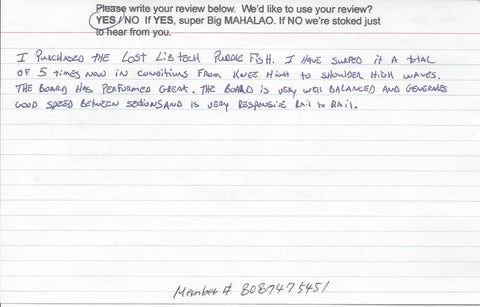 Please write your review below. We'd like to use your review?
YES/NO If YES, super Big MAHALAO. If NO we're stoked just
to hear from you.
I PURCHASED THE LOST LIBTECH PUDDLE FISH. I HAVE SURFED IT A TOTAL
OF 5 TIMES NOW IN CONDITIONS FROM KNEE HIGH TO SHOWDER HIGH WAVES.
THE BOARD HAS PERFORMED GREAT. THE BOARD IS VERY WELL BALANCED AND GENERATES
GOOD SPEED BETWEEN SECTIONS AND IS VERY RESPONSIVE RAIL TO RAIL.
Member # 8087475451